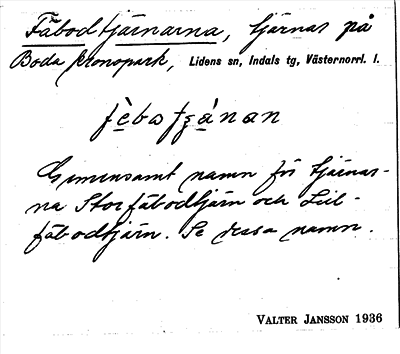 Fäbodtjärnarna, tjärnar på
Boda kronopark, Lidens sn, Indals tg, Västernorrl. l.
fèbotjánan
Gemensamt namn för tjärnar-
na Storfäbodtjärn och Lill-
fäbodtjärn. Se dessa namn.
VALTER JANSSON 1936